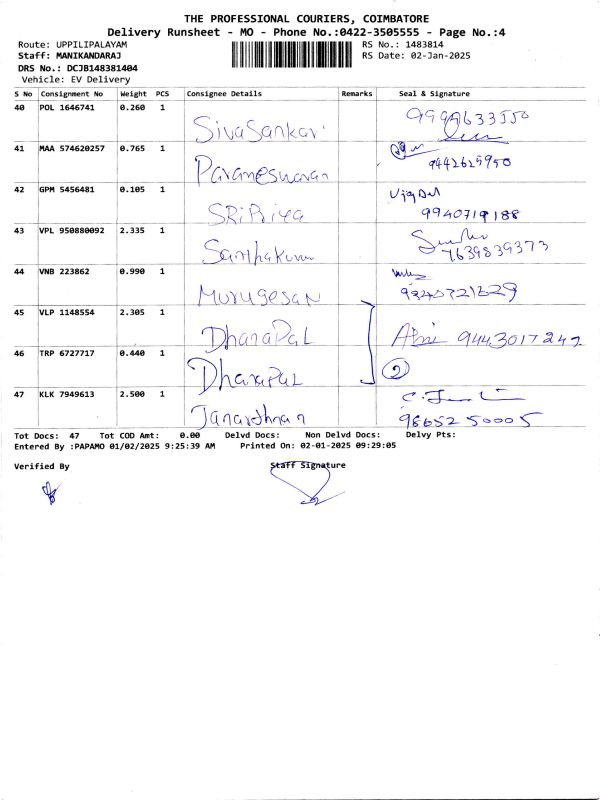 THE PROFESSIONAL COURIERS, COIMBATORE
Delivery Runsheet - MO - Phone No.:0422-3505555 - Page No.:4
Route: UPPILIPALAYAM RS No.: 1483814
Staff: MANIKANDARAJ RS Date: 02-Jan-2025
DRS No.: DCJB148381404
Vehicle: EV Delivery
S No Consignment No Weight PCS Consignee Details Remarks Seal & Signature
40 POL 1646741 0.260 1 SivaSankari
41 MAA 574620257 0.765 1 Parameswaran
42 GPM 5456481 0.105 1 SRiPRiya 9940719188
43 VPL 950880092 2.335 1 Santhakumar 7639839373
44 VNB 223862 0.990 1 Murugesan
45 VLP 1148554 2.305 1 DharaPaL 9443017242
46 TRP 6727717 0.440 1 DharaPaL 2
47 KLK 7949613 2.500 1 Janarthnan 98652 50005
Tot Docs: 47 Tot COD Amt: 0.00 Delvd Docs: Non Delvd Docs: Delvy Pts:
Entered By :PAPAMO 01/02/2025 9:25:39 AM Printed On: 02-01-2025 09:29:05
Verified By Staff Signature